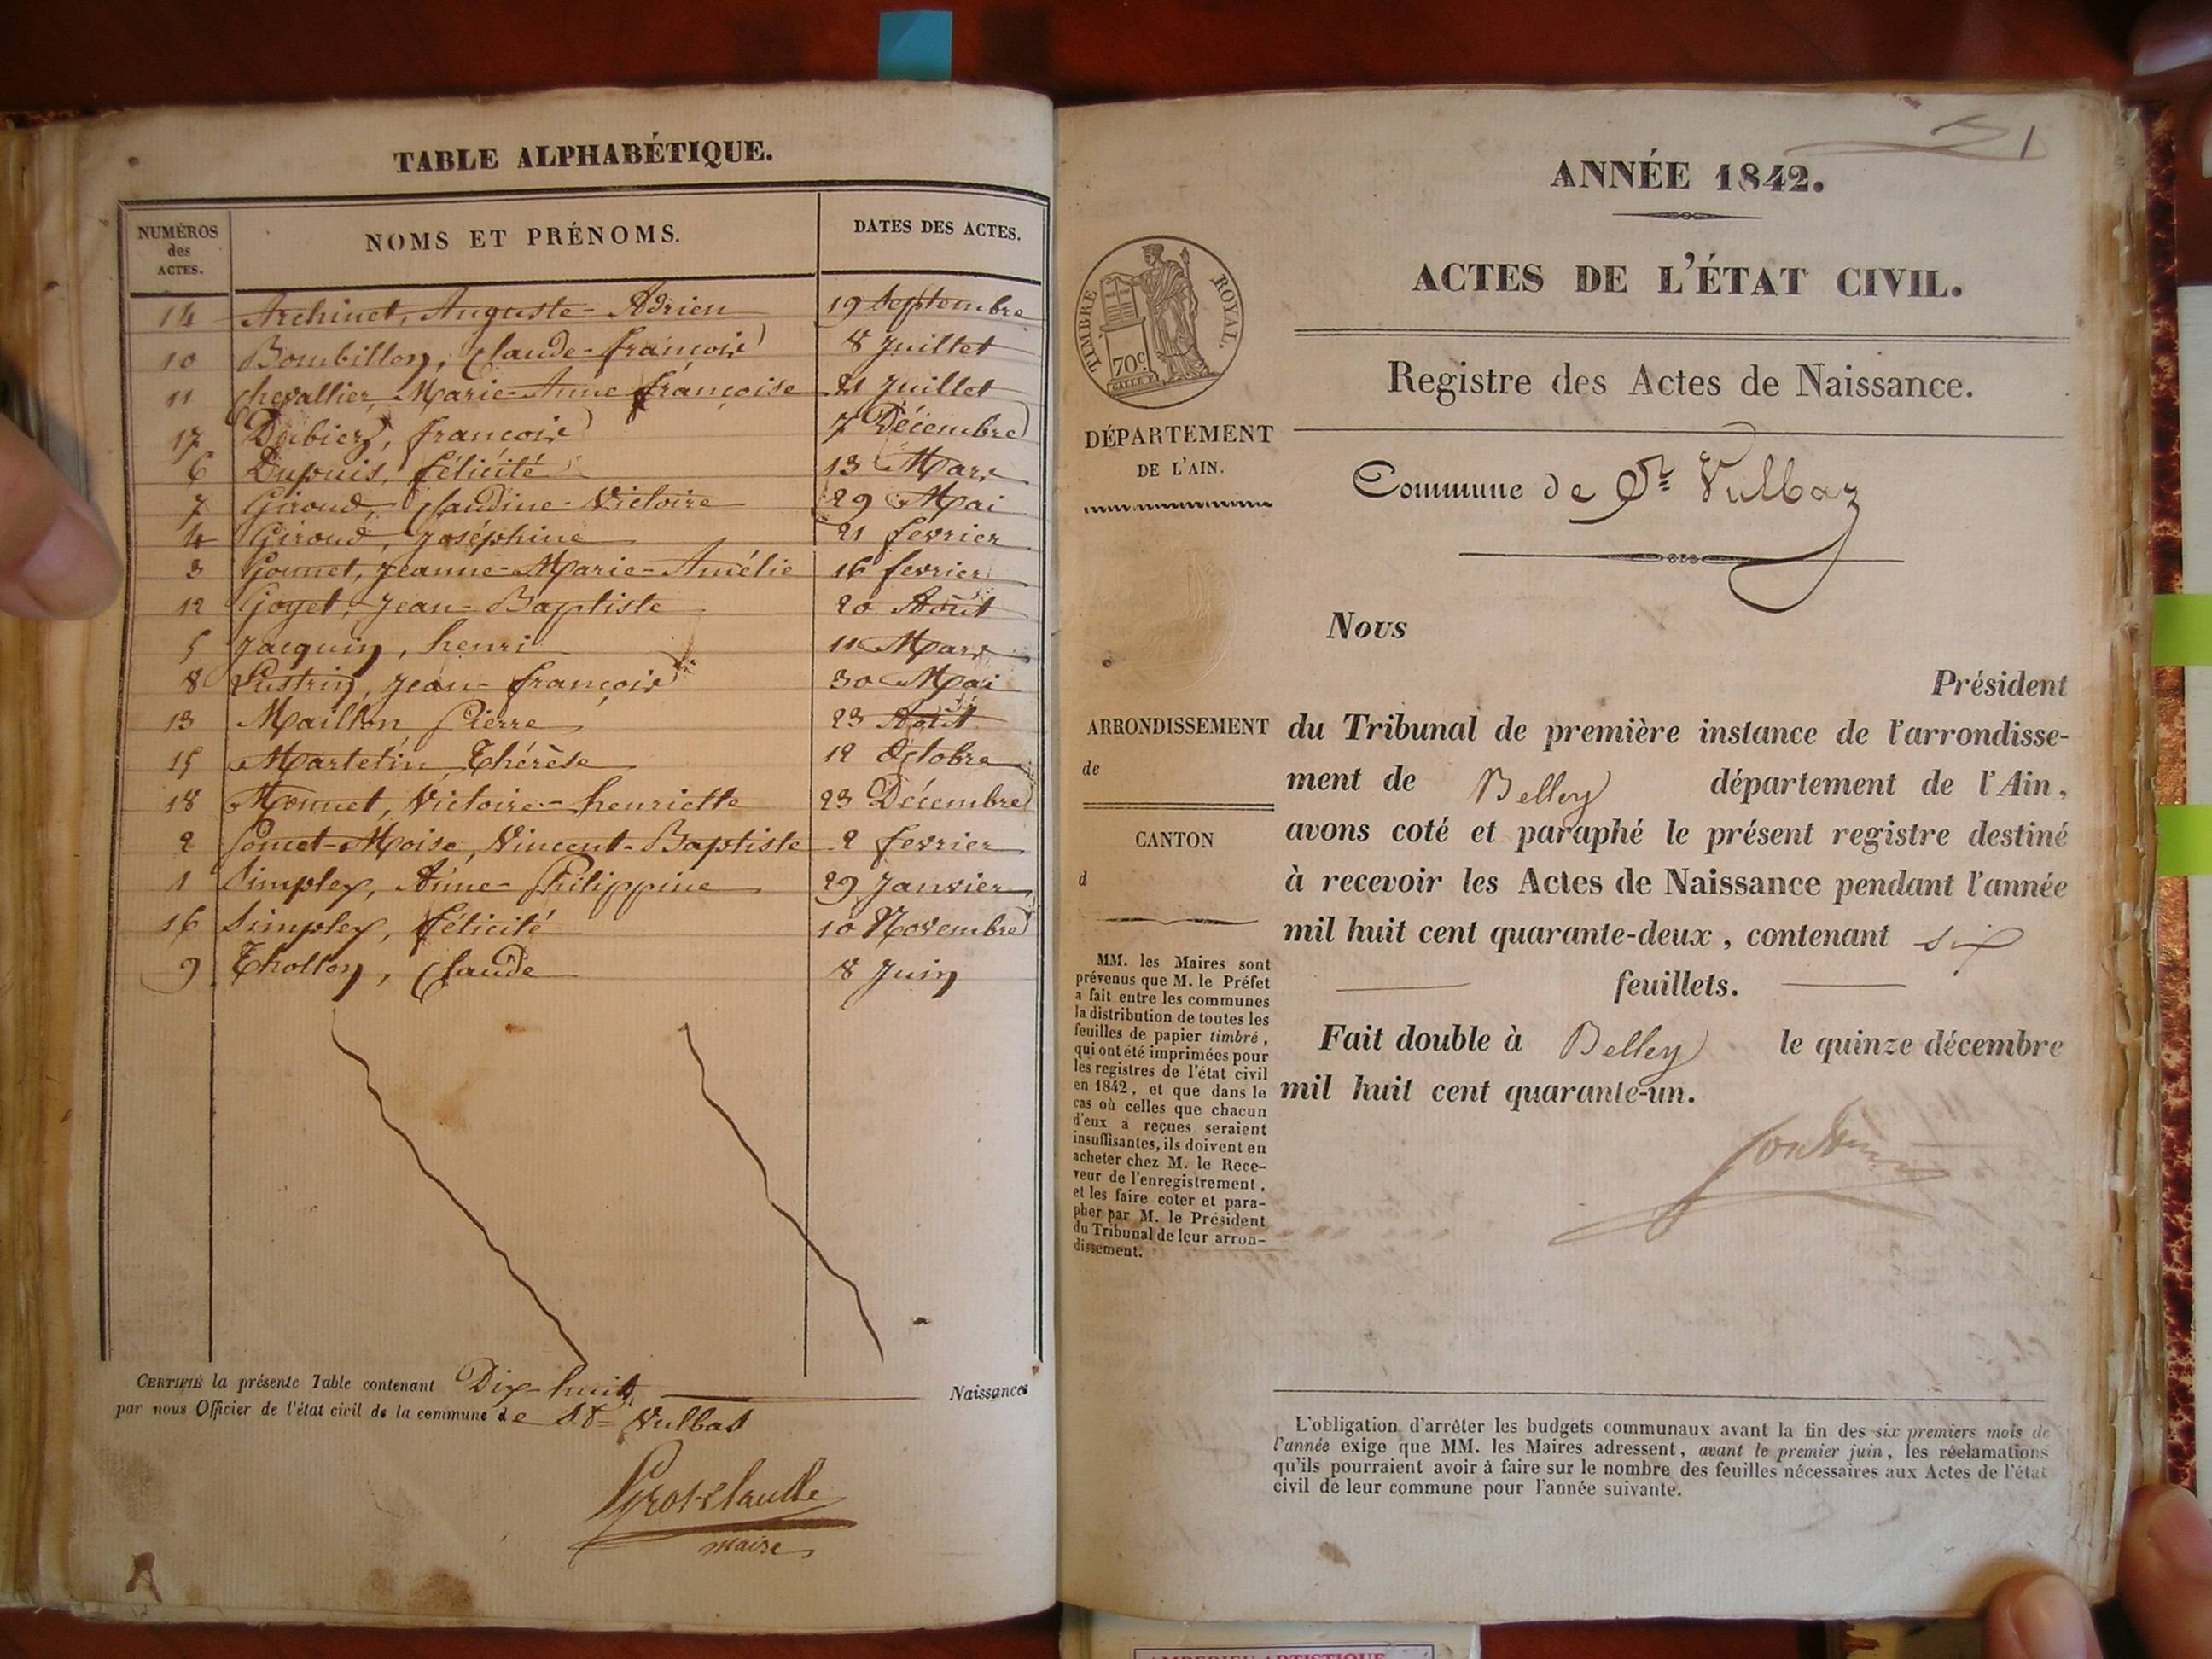 TABLE ALPHABÉTIQUE.
NUMÉROS des ACTES.
NOMS ET PRÉNOMS.
DATES DES ACTES.
14 Archinet, Auguste-Adrien 19 Septembre
10 Bombillon, Claude-françois 8 Juillet
11 chevallier, Marie-Anne françoise 21 Juillet
17 Dubiez, françois 7 Décembre
6 Dupuis, félicité 13 Mars
7 Giroud, Claudine-Victoire 29 Mai
4 Giroud, Joséphine 21 fevrier
3 Gonnet, Jeanne-Marie-Amélie 16 fevrier
12 Goyet, Jean-Baptiste 20 Août
5 Jacquin, henri 11 Mars
8 Lustrin, Jean-françois 30 Mai
13 Maillon Pierre 23 Août
15 Martelin Thérèse 12 Octobre
18 Monnet, Victoire-henriette 23 Décembre
2 Poncet-Moise, Vincent-Baptiste 2 fevrier
1 Simplex, Aime-Philippine 29 Janvier
16 Simplex, félicité 10 Novembre
9 Thollon, Claude 8 Juin
CERTIFIÉ la présente Table contenant Dix-huit Naissances
par nous Officier de l'état civil de la commune de St Vulbas
Grosclaude
maire
1
ANNÉE 1842.
ACTES DE L'ÉTAT CIVIL.
TIMBRE ROYAL.
70c
Registre des Actes de Naissance.
DÉPARTEMENT
DE L'AIN.
Commune de St Vulbaz
Nous
Président
ARRONDISSEMENT
de
du Tribunal de première instance de l'arrondisse-
ment de Belley département de l'Ain,
avons coté et paraphé le présent registre destiné
à recevoir les Actes de Naissance pendant l'année
mil huit cent quarante-deux, contenant six
feuillets.
Fait double à Belley le quinze décembre
mil huit cent quarante-un.
CANTON
d
MM. les Maires sont
prévenus que M. le Préfet
a fait entre les communes
la distribution de toutes les
feuilles de papier timbré,
qui ont été imprimées pour
les registres de l'état civil
en 1842, et que dans le
cas où celles que chacun
d'eux a reçues seraient
insuffisantes, ils doivent en
acheter chez M. le Rece-
veur de l'enregistrement,
et les faire coter et para-
pher par M. le Président
du Tribunal de leur arron-
dissement.
L'obligation d'arrêter les budgets communaux avant la fin des six premiers mois de
l'année exige que MM. les Maires adressent, avant le premier juin, les réclamations
qu'ils pourraient avoir à faire sur le nombre des feuilles nécessaires aux Actes de l'état
civil de leur commune pour l'année suivante.